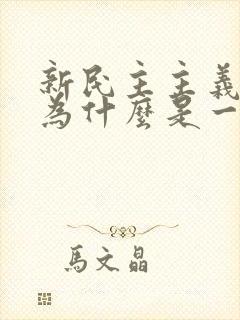 新民主主義
為什麼是一
馬文晶